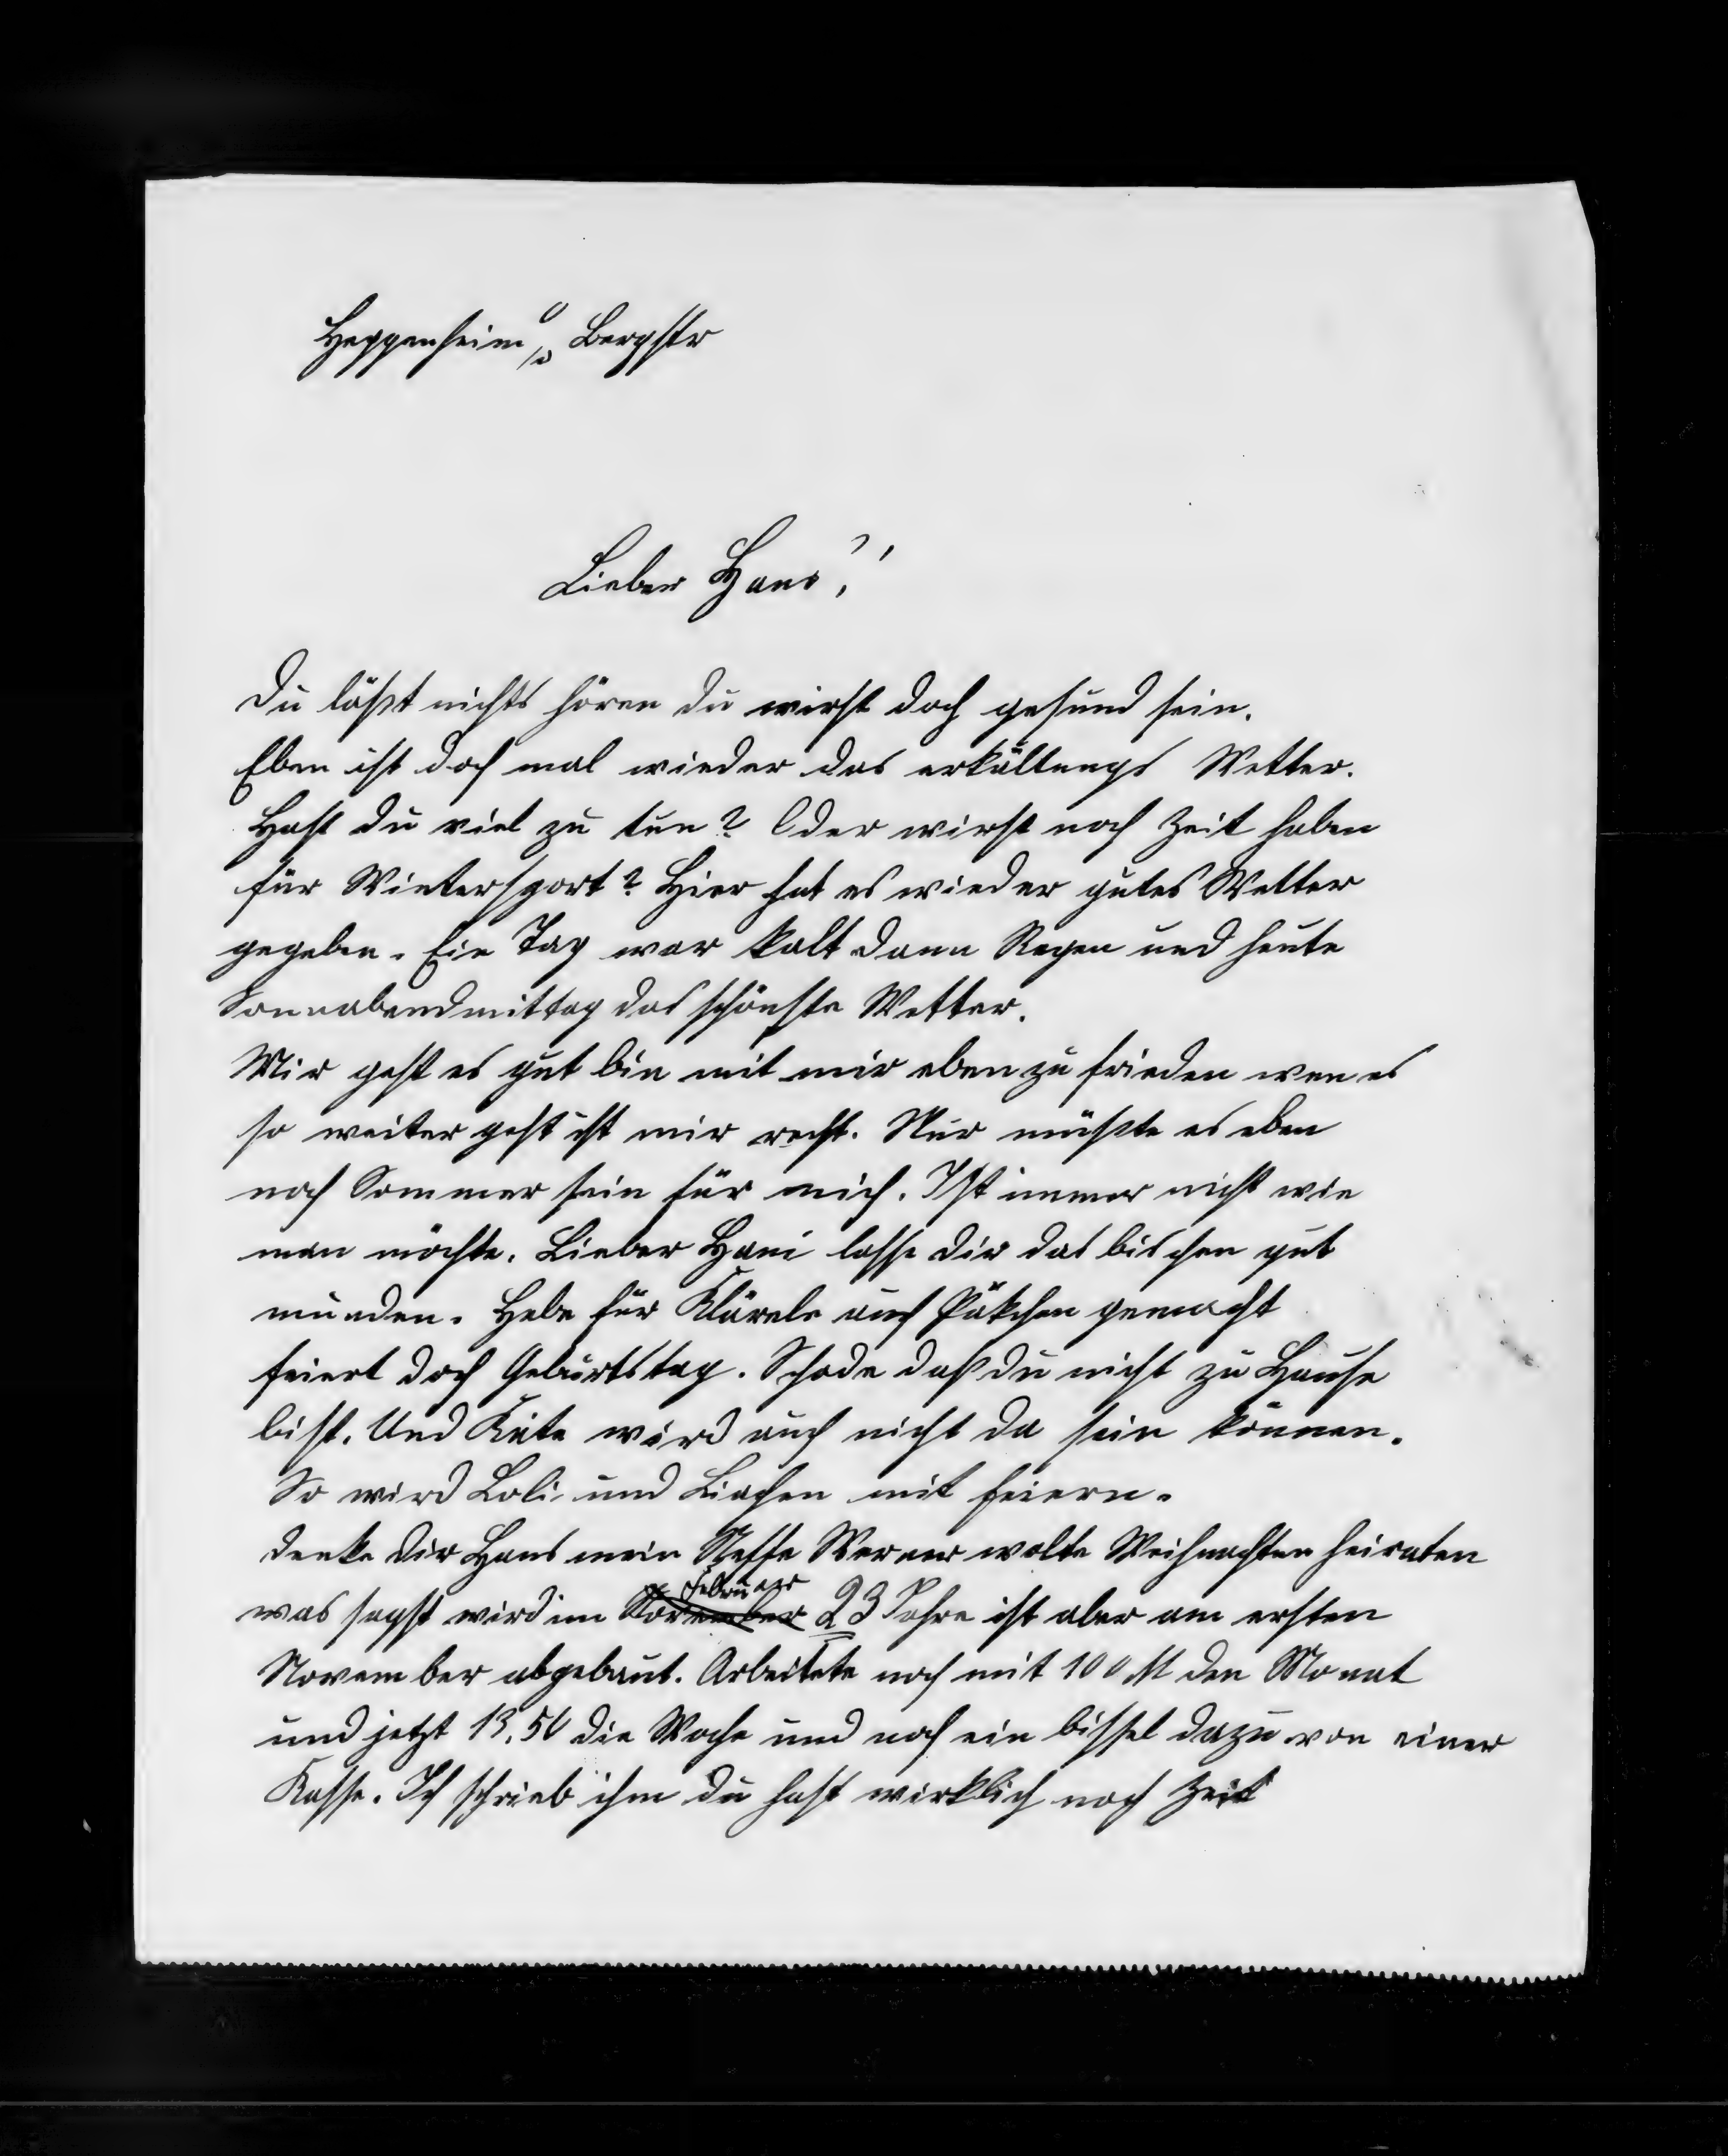 Heppenheim a/d Bergstr
Lieber Hans!
Du läßt nichts hören du wirst doch gesund sein.
Eben ist doch mal wieder das erkältungs Wetter.
Hast du viel zu tun? Oder wirst noch Zeit haben
für Wintersport? Hier hat es wieder gutes Wetter
gegeben. Ein Tag war kalt dann Regen und heute
Sonnabendmittag das schönste Wetter.
Mir geht es gut bin mit mir eben zu frieden wen es
so weiter geht ist mir recht. Nur müßte es eben
noch Sommer sein für mich. Ist immer nicht wie
man möchte. Lieber Hani lasse dir das bischen gut
munden. Habe für Klärele auch Päkchen gemacht
feiert doch Geburtstag. Schade daß du nicht zu Hause
bist. Und Käte wird auch nicht da sein können.
So wird Loli und Liachen mit feiern.
denke dir Hans mein Neffe Werner wolte Weihnachten heiraten
was sagst wird im November Februar 23 Jahre ist aber am ersten
November abgebaut. Arbeitete noch mit 100 M den Monat
und jetzt 13,50 die Woche und noch ein bissel dazu von einer
Kasse. Ich schrieb ihm du hast wirklich noch Zeit